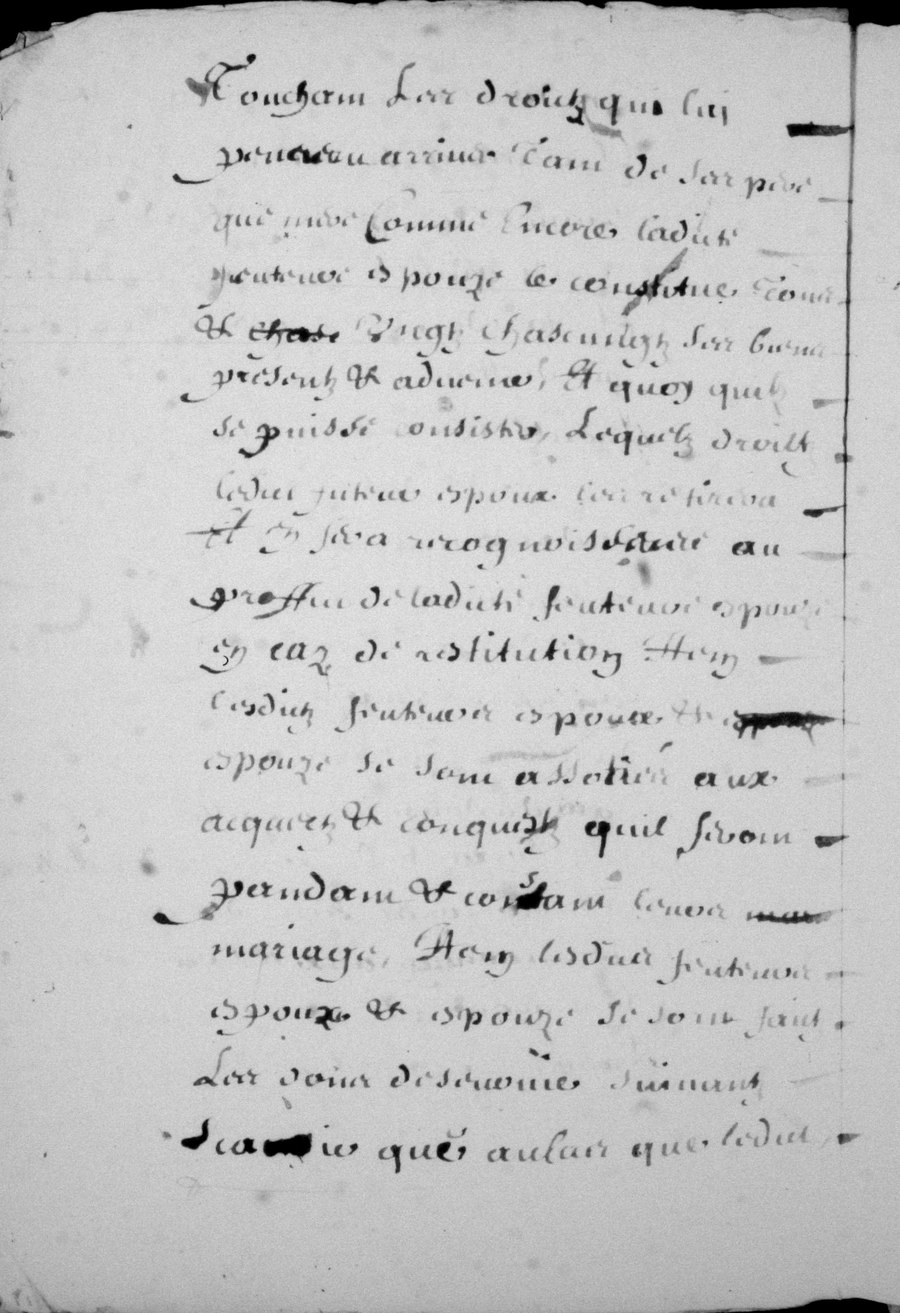 Toucham Les droitz qui luj
peuvem arriver Tam de ses pere
que mere Comme Encores ladicte
feuteure espouze se constitue Tous
& chase Ungz Chascungz ses biens
presentz & advenir, Et quoy quilz
se puisse consister, Lequelz droitz
ledict futeur espoux les retirera
Et en fera recognoissance au
proffict de ladicte feuteure espouze
en caz de restitution Item
lesdictz feuteurs espoux & espouze
espouze se sont associés aux
acquetz & conquestz quil feront
pandam & constant leurs mar
mariage, Item lesdictz feuteurs
espoux & espouze se sont faict
Les dons de survie suivantz
Scavoir que au cas que ledict